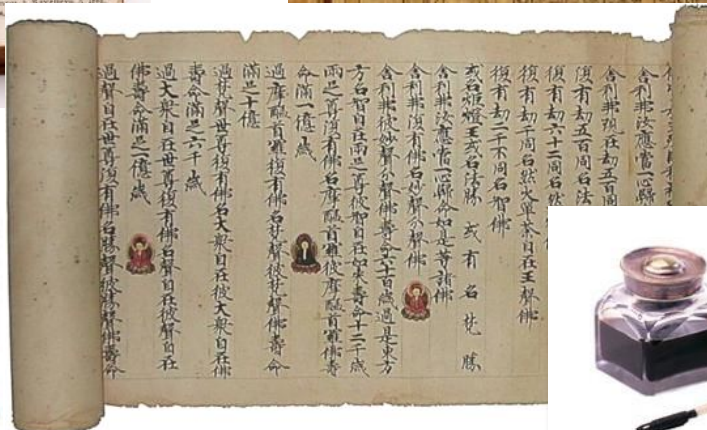 舍利弗汝應當一心歸
舍利弗現在劫五百同
復有劫五百同名法
復有劫六十二同名然
復有劫千同名然火單荼自在王聲佛
復有劫二千不同名智佛
或名炬燈王或名法勝 或有名梵勝
舍利弗汝應當一心歸命如是等諸佛
舍利弗復有佛名妙聲分聲佛
舍利弗彼妙聲分聲佛壽命六十百歲過是東方
方名智自在兩足尊彼智自在如來壽命十二千歲
兩足尊復有佛名摩醯首羅彼摩醯首羅佛壽
命滿一億歲
過摩醯首羅復有佛名梵聲彼梵聲佛壽命
滿足十億
過梵聲世尊復有佛名大衆自在彼大衆自在佛
壽命滿足六千歲
過大衆自在世尊復有佛名聲自在彼聲自在
佛壽命滿足一億歲
過聲自在世尊復有佛名勝聲彼勝聲佛壽命